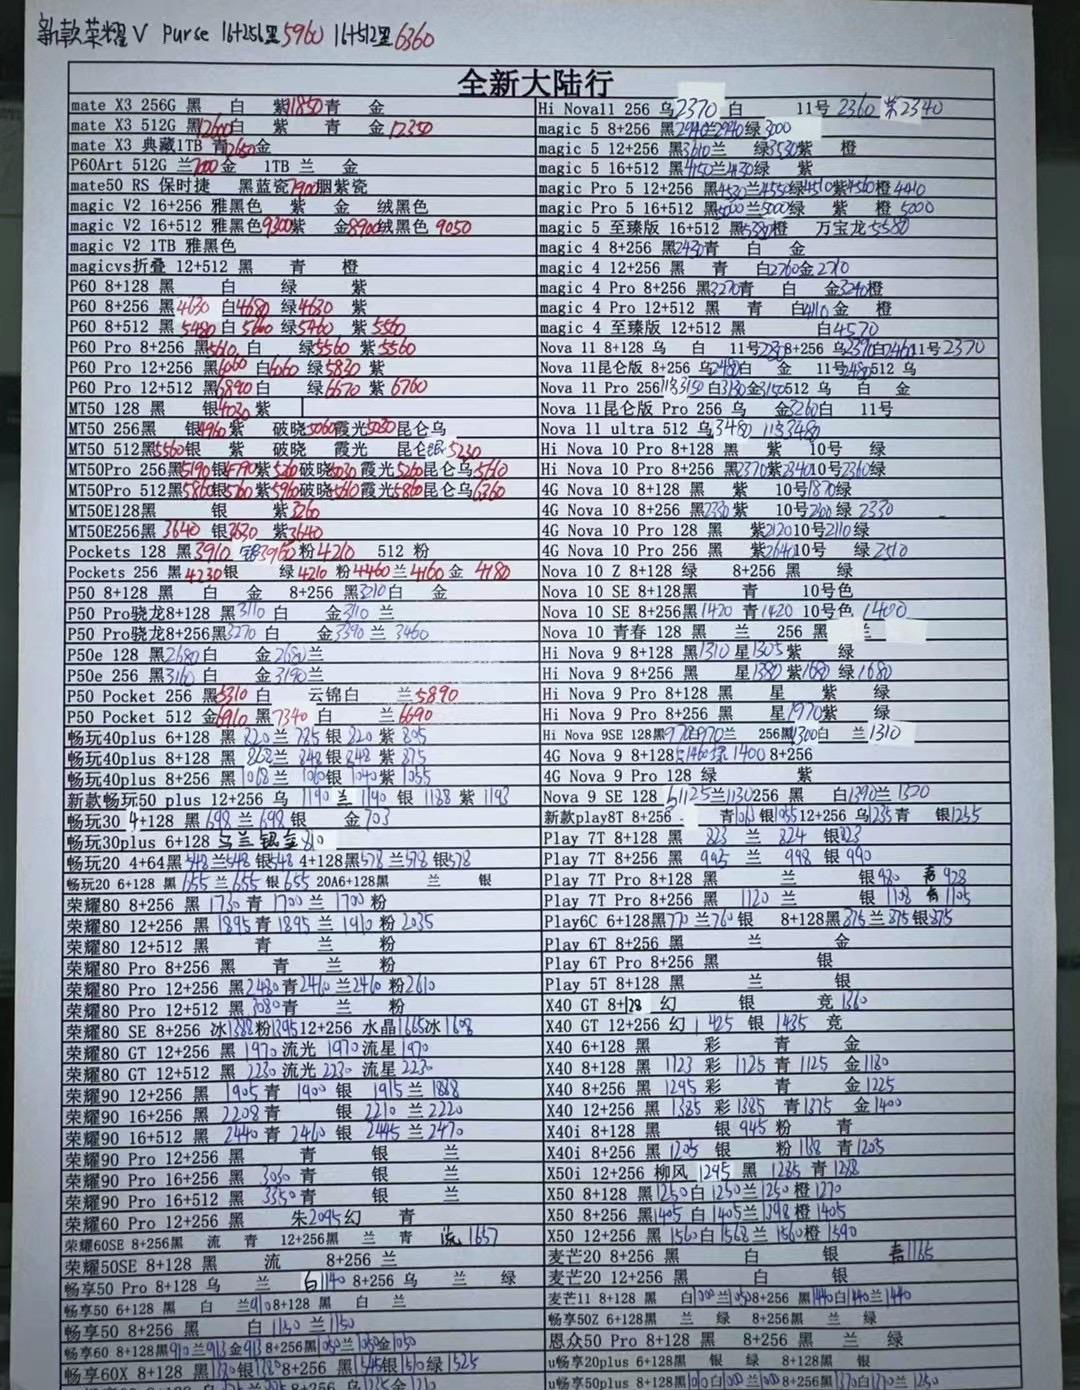 新款荣耀V Purse 16+256黑5960 16+512黑6360
全新大陆行
mate X3 256G 黑 白 紫11850青 金
mate X3 512G 黑12600白 紫 青 金12350
mate X3 典藏1TB 青 金
P60Art 512G 兰 金 1TB 兰 金
mate50 RS 保时捷 黑蓝瓷7900胭紫瓷
magic V2 16+256 雅黑色 紫 金 绒黑色
magic V2 16+512 雅黑色9300紫 金8900绒黑色 9050
magic V2 1TB 雅黑色
magicvs折叠 12+512 黑 青 橙
P60 8+128 黑 白 绿 紫
P60 8+256 黑4630 白4680 绿4630 紫
P60 8+512 黑5480白 绿5460 紫5560
P60 Pro 8+256 黑5610白 绿5560 紫5560
P60 Pro 12+256 黑6060白6060绿5830 紫
P60 Pro 12+512 黑6890白 绿6670 紫6760
MT50 128 黑 银4030紫
MT50 256黑 银4960紫 破晓5060霞光5020昆仑乌
MT50 512黑5560银 紫 破晓 霞光 昆仑银5230
MT50Pro 256黑5190银 紫5260破晓 霞光5260昆仑乌
MT50Pro 512黑5860银 紫5960破晓 霞光5860昆仑乌6360
MT50E128黑 银 紫3260
MT50E256黑 3640 银3630 紫3640
Pockets 128 黑3910 银3960粉4210 512 粉
Pockets 256 黑4230银 绿4210 粉4460兰4160金 4180
P50 8+128 黑 白 金 8+256 黑3210白 金
P50 Pro骁龙8+128 黑3110 白 金3110 兰
P50 Pro骁龙8+256黑3270 白 金3390兰 3460
P50e 128 黑2680白 金2680兰
P50e 256 黑3160白 金3190兰
P50 Pocket 256 黑5310白 云锦白 兰5890
P50 Pocket 512 金6910黑7340白 兰6690
畅玩40plus 6+128 黑 820兰 785 银 820 紫 805
畅玩40plus 8+128 黑 868兰 848银 848 紫 875
畅玩40plus 8+256 黑1068兰 1060银 1040紫1055
新款畅玩50 plus 12+256 乌 1190 兰 1190 银 1188 紫 1193
畅玩30 4+128 黑 698 兰 698 银 金703
畅玩30plus 6+128 乌兰银金810
畅玩20 4+64黑548兰548 银548 4+128黑578兰578银578
畅玩20 6+128 黑 655兰 655 银655 20A6+128黑 兰 银
荣耀80 8+256 黑 1730青 1700兰 1700粉
荣耀80 12+256 黑 1895青1895兰 1910粉2035
荣耀80 12+512 黑 青 兰 粉
荣耀80 Pro 8+256 黑 青 兰 粉
荣耀80 Pro 12+256 黑2480青2460兰2460粉2610
荣耀80 Pro 12+512 黑3080青 兰 粉
荣耀80 SE 8+256 冰1388粉1395 12+256 水晶1665冰1608
荣耀80 GT 12+256 黑 1970流光 1970流星1970
荣耀80 GT 12+512 黑 2230流光 2230 流星2230
荣耀90 12+256 黑 1905青 1900银 1915兰1868
荣耀90 16+256 黑 2208青 银 2210 兰2220
荣耀90 16+512 黑 2440青 2460 银 2445兰2470
荣耀90 Pro 12+256 黑 青 银 兰
荣耀90 Pro 16+256 黑 3030青 银 兰
荣耀90 Pro 16+512 黑 3350青 银 兰
荣耀60 Pro 12+256 黑 朱2095幻 青
荣耀60SE 8+256黑 流 青 12+256黑 兰 青 流1657
荣耀50SE 8+128 黑 流 8+256 兰
畅享50 Pro 8+128 乌 兰 白1140 8+256 乌 兰 绿
畅享50 6+128 黑 白 兰910 8+128 黑 白 兰
畅享50 8+256 黑 白 1150兰1150
畅享60 8+128黑910兰913金913 8+256黑1050兰1050金1050
畅享60X 8+128 黑 银 8+256 黑 银1510绿1525
Hi Nova11 256 乌2370 白 11号 2360 紫2340
magic 5 8+256 黑2940兰2940绿3000
magic 5 12+256 黑3610兰 绿3530紫 橙
magic 5 16+512 黑4150兰4130绿 紫
magic Pro 5 12+256 黑4530兰4550绿4510紫4560橙4410
magic Pro 5 16+512 黑 兰5000绿 紫 橙5000
magic 5 至臻版 16+512 黑5380橙 万宝龙5580
magic 4 8+256 黑2430青 白 金
magic 4 12+256 黑 青 白2760金2710
magic 4 Pro 8+256 黑3270青 白 金3240橙
magic 4 Pro 12+512 黑 青 白4110金 橙
magic 4 至臻版 12+512 黑 白4570
Nova 11 8+128 乌 白 11号 8+256 乌2390白2460 11号2370
Nova 11昆仑版 8+256 乌2480白 金 11号2480 512 乌
Nova 11 Pro 256 11号3150白3130金3150 512 乌 白 金
Nova 11昆仑版 Pro 256 乌 金3260白 11号
Nova 11 ultra 512 乌3480 11号3480
Hi Nova 10 Pro 8+128 黑 紫 10号 绿
Hi Nova 10 Pro 8+256 黑2370紫2340 10号2360绿
4G Nova 10 8+128 黑 紫 10号1870绿
4G Nova 10 8+256 黑2330紫 10号 绿 2330
4G Nova 10 Pro 128 黑 紫2120 10号2110绿
4G Nova 10 Pro 256 黑 紫2640 10号 绿2510
Nova 10 Z 8+128 绿 8+256 黑 绿
Nova 10 SE 8+128黑 青 10号色
Nova 10 SE 8+256黑1420 青1420 10号色 1400
Nova 10 青春 128 黑 兰 256 黑 兰
Hi Nova 9 8+128 黑1310 星1305紫 绿
Hi Nova 9 8+256 黑 星1380紫1680 绿1680
Hi Nova 9 Pro 8+128 黑 星 紫 绿
Hi Nova 9 Pro 8+256 黑 星1970紫 绿
Hi Nova 9SE 128黑970白970兰 256黑1300白 兰1310
4G Nova 9 8+128 1400 8+256
4G Nova 9 Pro 128 绿 紫
Nova 9 SE 128 1125兰1130 256黑 白1390兰1320
新款play8T 8+256 青1061银1055 12+256 乌1235青 银1255
Play 7T 8+128 黑 823 兰 824 银823
Play 7T 8+256 黑 995 兰 998 银990
Play 7T Pro 8+128 黑 兰 银980 青928
Play 7T Pro 8+256 黑 1120 兰 银 1108 青1105
Play6C 6+128黑770兰760银 8+128黑875兰875银875
Play 6T 8+256 黑 兰 金
Play 6T Pro 8+256 黑 银
Play 5T 8+128 黑 兰 银
X40 GT 8+128 幻 银 竞1360
X40 GT 12+256 幻1425 银 1435 竞
X40 6+128 黑 彩 青 金
X40 8+128 黑 1123 彩 1125 青 1125 金1180
X40 8+256 黑 1295彩 青 金1225
X40 12+256 黑 1385 彩1385 青1375 金1400
X40i 8+128 黑 银945粉 青
X40i 8+256 黑 1205 银 粉1188青1205
X50i 12+256 柳风 1295 黑 1285青1288
X50 8+128 黑1250白1250兰1250橙1270
X50 8+256 黑1405 白1405兰1398橙1405
X50 12+256 黑1560白1568兰1560橙1590
麦芒20 8+256 黑 白 银 青1165
麦芒20 12+256 黑 白 银
麦芒11 8+128 黑 白1000兰1050 8+256 黑1440白1440兰1440
畅享50Z 6+128 黑 兰 绿 8+256黑 兰 绿
恩众50 Pro 8+128 黑 8+256 黑 兰 绿
u畅享20plus 6+128黑 银 绿 8+128黑 银
u畅享50plus 8+128黑1010白1000兰1000 8+256黑1270白1270兰1250